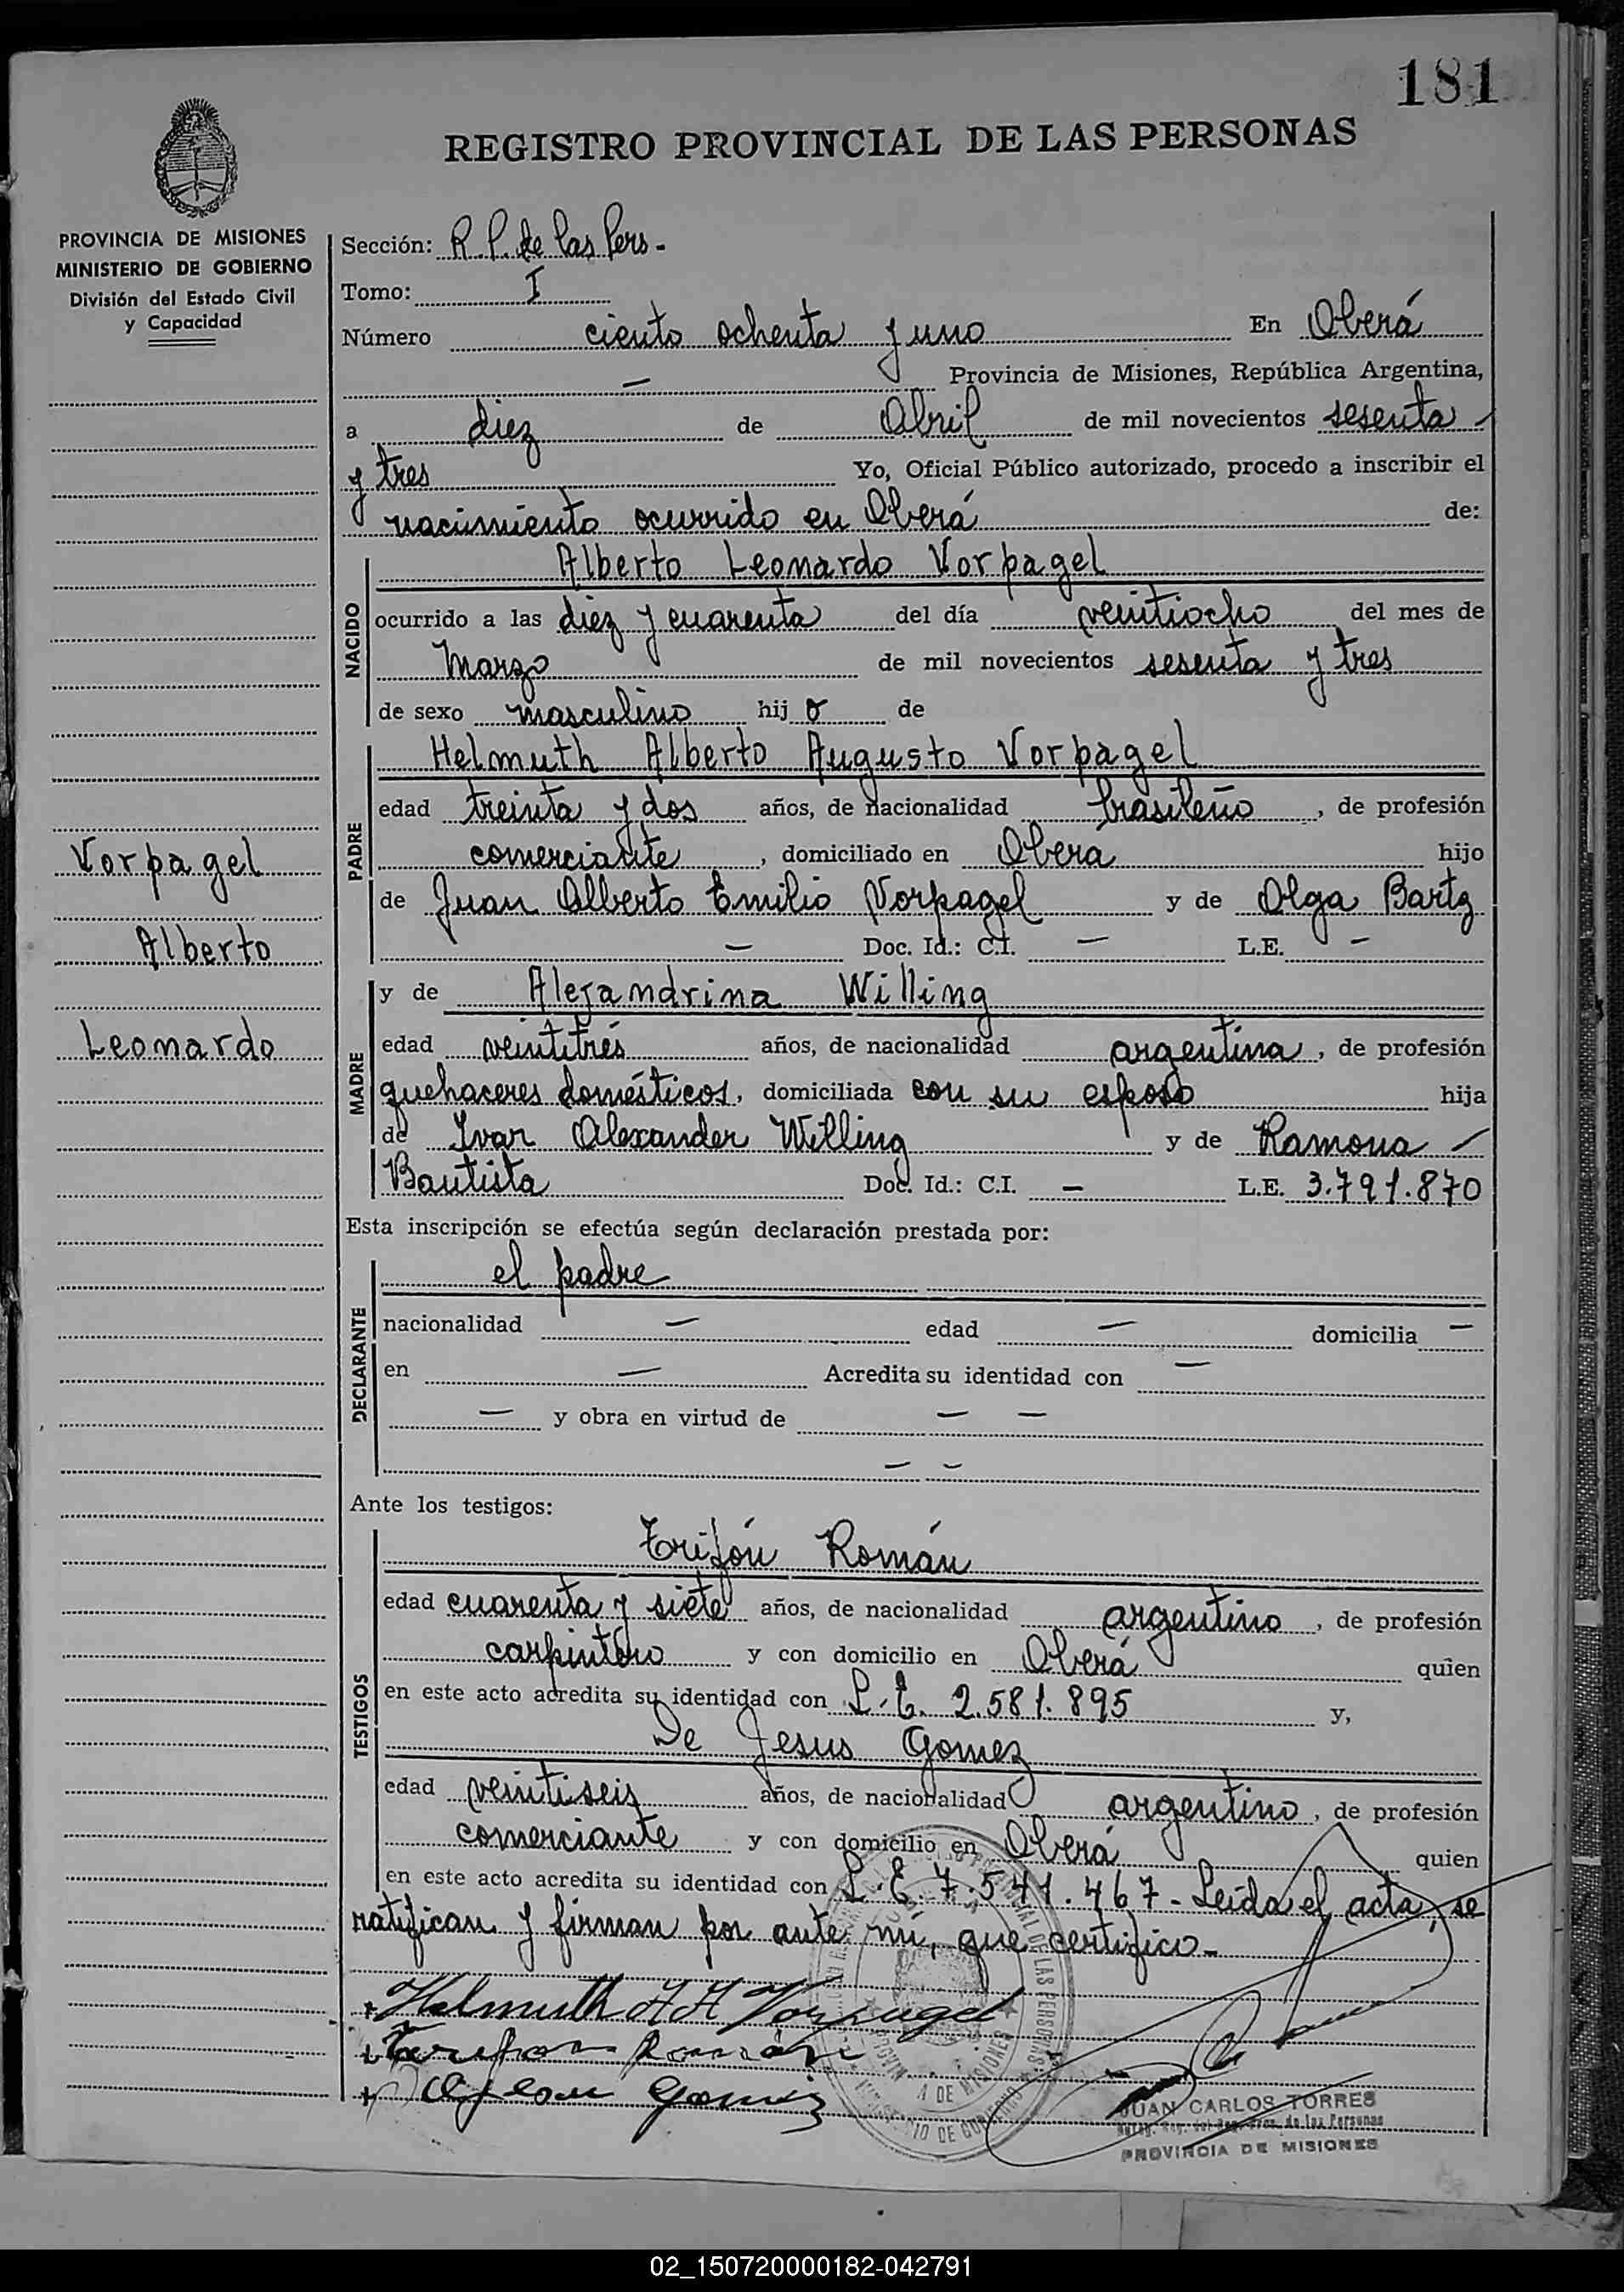 181
REGISTRO PROVINCIAL DE LAS PERSONAS
PROVINCIA DE MISIONES
MINISTERIO DE GOBIERNO
División del Estado Civil
y Capacidad
Sección: R. P. de las Pers.-
Tomo: I
Número ciento ochenta y uno En Oberá
— Provincia de Misiones, República Argentina,
a diez de Abril de mil novecientos sesenta
y tres Yo, Oficial Público autorizado, procedo a inscribir el
nacimiento ocurrido en Oberá de:
NACIDO
Alberto Leonardo Vorpagel
ocurrido a las diez y cuarenta del día veintiocho del mes de
Marzo de mil novecientos sesenta y tres
de sexo masculino hijo de
PADRE
Helmuth Alberto Augusto Vorpagel
edad treinta y dos años, de nacionalidad brasileño, de profesión
comerciante, domiciliado en Oberá hijo
de Juan Alberto Emilio Vorpagel y de Olga Bartz
— Doc. Id.: C.I. — L.E. —
Vorpagel
Alberto
Leonardo
MADRE
y de Alejandrina Willing
edad veintitrés años, de nacionalidad argentina, de profesión
quehaceres domésticos, domiciliada con su esposo hija
de Ivar Alexander Willing y de Ramona —
Bautista Doc. Id.: C.I. — L.E. 3.791.870
Esta inscripción se efectúa según declaración prestada por:
DECLARANTE
el padre
nacionalidad — edad — domicilia —
en — Acredita su identidad con —
— y obra en virtud de — —
— —
Ante los testigos:
TESTIGOS
Trifón Román
edad cuarenta y siete años, de nacionalidad argentino, de profesión
carpintero y con domicilio en Oberá quien
en este acto acredita su identidad con L.E. 2.581.895 y,
De Jesus Gomez
edad veintiseis años, de nacionalidad argentino, de profesión
comerciante y con domicilio en Oberá quien
en este acto acredita su identidad con L.E. 7.541.467.- Leída el acta, se
ratifican y firman por ante mí, que certifico.-
Helmuth A A Vorpagel
Trifon Román
Gomez
JUAN CARLOS TORRES
de las Personas
PROVINCIA DE MISIONES
02_150720000182-042791